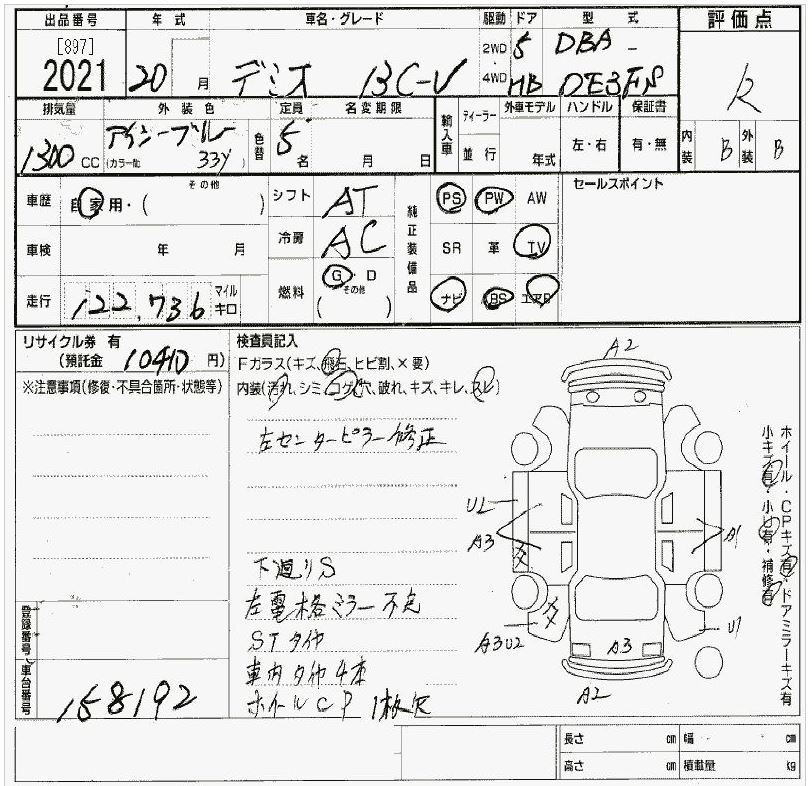 出品番号 年式 車名・グレード 駆動 ドア 型式 評価点
[897]
2021 20 月 デミオ 13C-V 2WD 4WD 5 HB DBA- DE3FS R
排気量 外装色 色替 定員 名変期限 輸入車 ディーラー 外車モデル ハンドル 保証書 内装 外装
1300 CC アイシーブルー (カラーNo. 33Y ) 5 名 月 日 並行 年式 左・右 有・無 B B
車歴 自家用・( その他 ) シフト AT 純正装備品 PS PW AW セールスポイント
車検 年 月 冷房 AC SR 革 TV
走行 122,736 マイル キロ 燃料 G・D (その他 ) ナビ ABS エアB
リサイクル券 有
(預託金 10410 円)
※注意事項(修復・不具合箇所・状態等)
検査員記入
Fガラス(キズ、飛石、ヒビ割、×要)
内装(汚れ、シミ、コゲ、穴、破れ、キズ、キレ、スレ)
左センターピラー修正
下廻りS
左電格ミラー不良
STタイヤ
車内タイヤ4本
ホイールCP 1枚欠
A2
U2
A3
A1
A3U2
U1
A3
A2
ホイール・CPキズ有・ドアミラーキズ有
小キズ有・小凹有・補修有
登録番号 車台番号
158192
長さ cm 幅 cm
高さ cm 積載量 kg